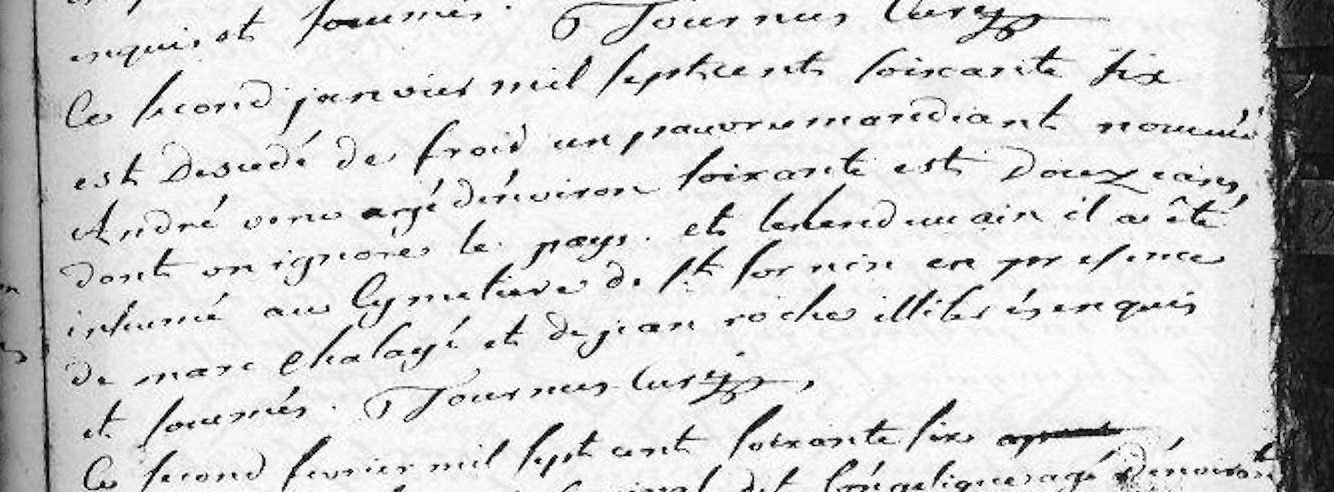 enquis et sommés. Tournus Curé
Ce second janvier mil septcents soixante six
est Desedé de froid un pauvre mandiant nommé
André agé d'environ soixante est Douze ans,
dont on ignore le pays. et lelendemain il a été
inhumé au Cymetiere de st. sornin en presence
de marc Chalayé et de jean roche illiterés enquis
et sommés. Tournus Curé,
Ce second fevrier mil sept cent soixante six
agé d'environ